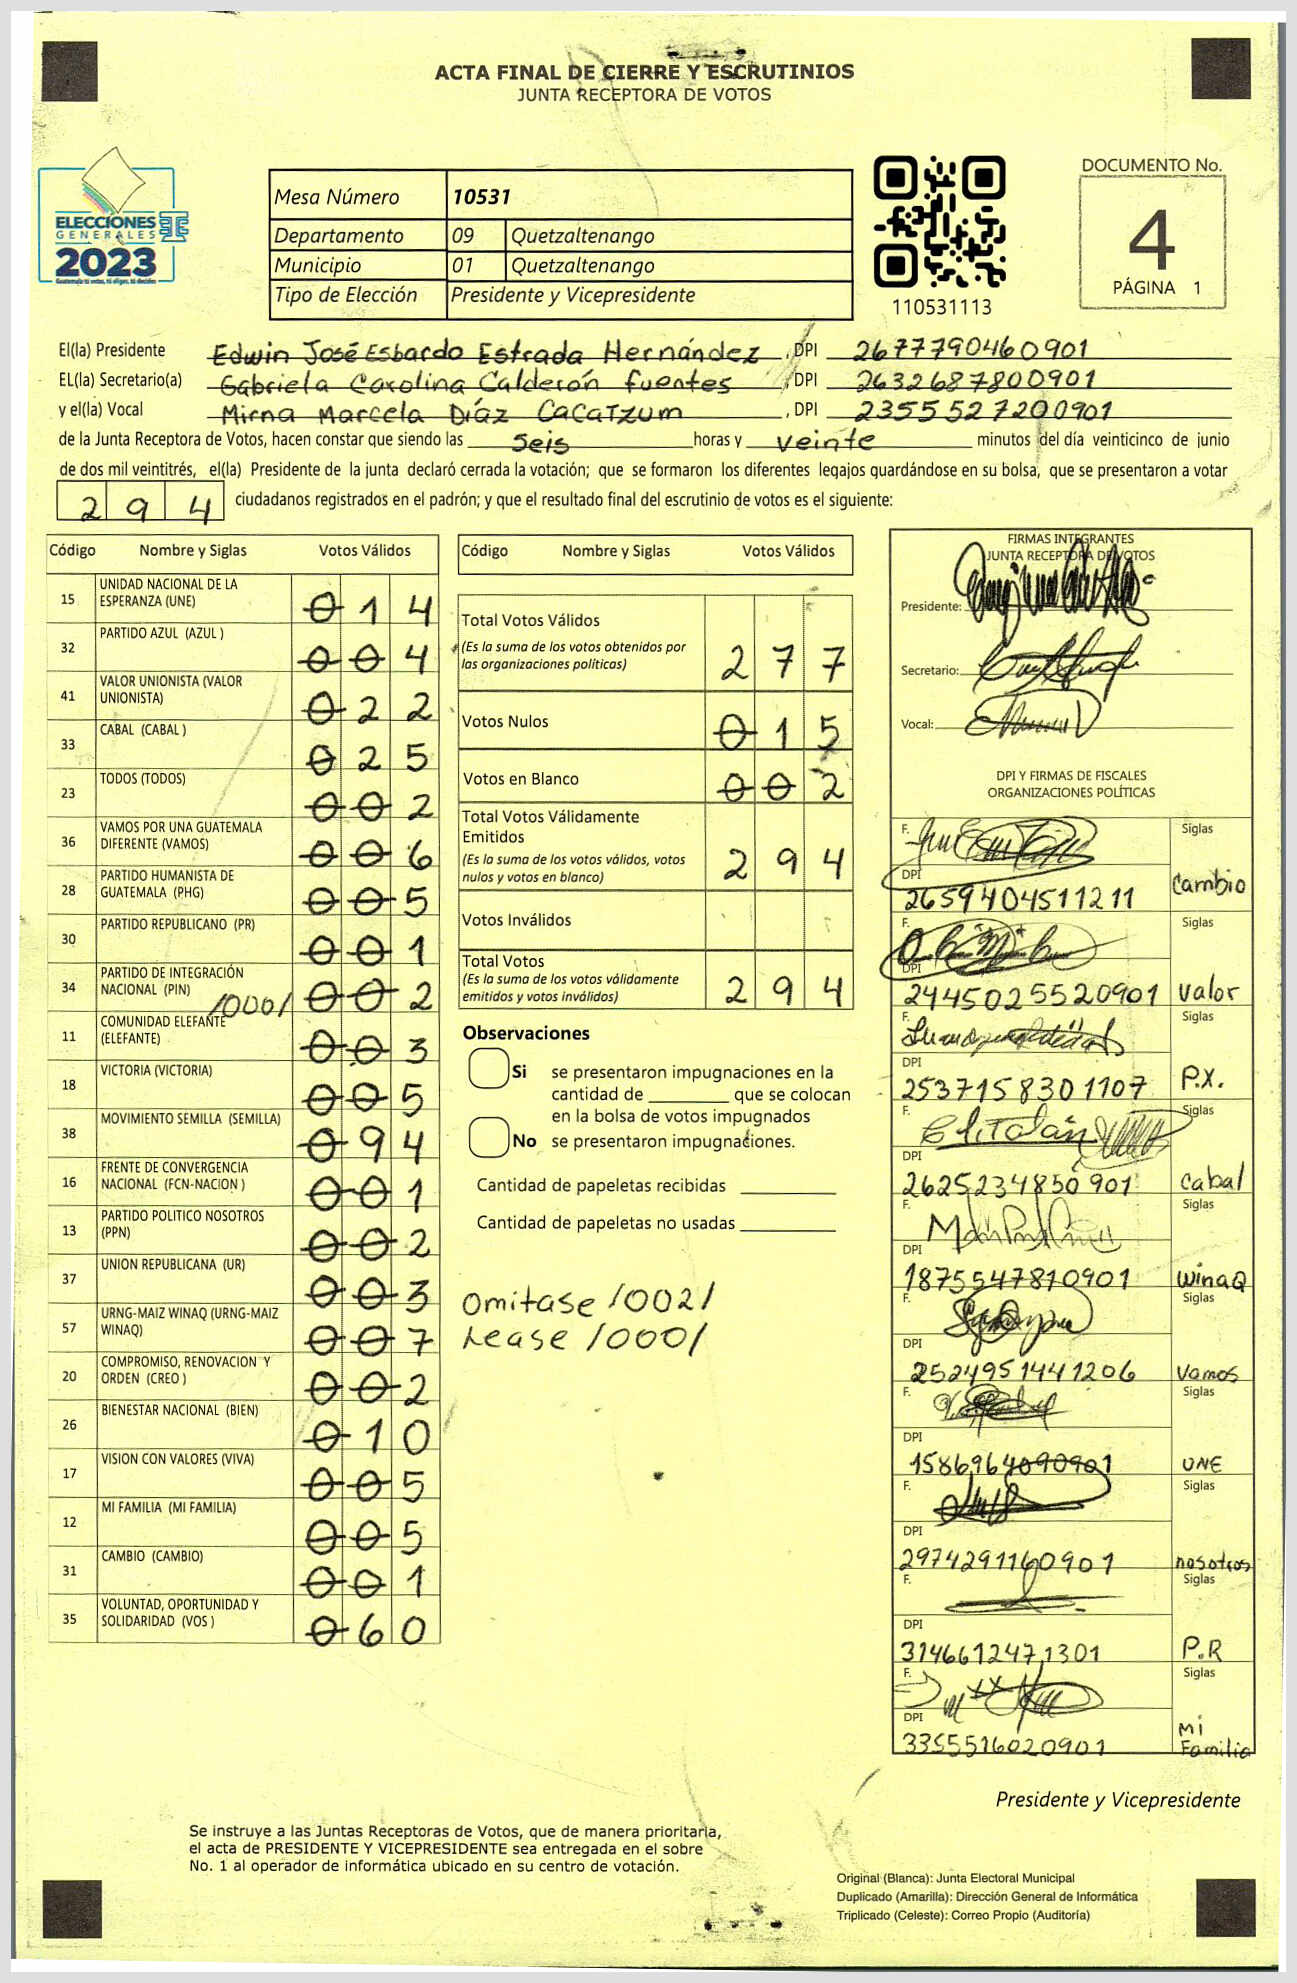 ACTA FINAL DE CIERRE Y ESCRUTINIOS
JUNTA RECEPTORA DE VOTOS
ELECCIONES
GENERALES
2023
Guatemala tú votas, tú eliges, tú decides
Mesa Número 10531
Departamento 09 Quetzaltenango
Municipio 01 Quetzaltenango
Tipo de Elección Presidente y Vicepresidente
110531113
DOCUMENTO No.
4
PÁGINA 1
El(la) Presidente Edwin José Esbardo Estrada Hernández, DPI 2677790460901
EL(la) Secretario(a) Gabriela Carolina Calderón fuentes, DPI 2632687800901
y el(la) Vocal Mirna Marcela Díaz Cacatzum, DPI 2355527200901
de la Junta Receptora de Votos, hacen constar que siendo las seis horas y veinte minutos del día veinticinco de junio
de dos mil veintitrés, el(la) Presidente de la junta declaró cerrada la votación; que se formaron los diferentes legajos guardándose en su bolsa, que se presentaron a votar
294 ciudadanos registrados en el padrón; y que el resultado final del escrutinio de votos es el siguiente:
Código Nombre y Siglas Votos Válidos
15 UNIDAD NACIONAL DE LA ESPERANZA (UNE) 014
32 PARTIDO AZUL (AZUL ) 004
41 VALOR UNIONISTA (VALOR UNIONISTA) 022
33 CABAL (CABAL ) 025
23 TODOS (TODOS) 002
36 VAMOS POR UNA GUATEMALA DIFERENTE (VAMOS) 006
28 PARTIDO HUMANISTA DE GUATEMALA (PHG) 005
30 PARTIDO REPUBLICANO (PR) 001
34 PARTIDO DE INTEGRACIÓN NACIONAL (PIN) /000/ 002
11 COMUNIDAD ELEFANTE (ELEFANTE) 003
18 VICTORIA (VICTORIA) 005
38 MOVIMIENTO SEMILLA (SEMILLA) 094
16 FRENTE DE CONVERGENCIA NACIONAL (FCN-NACION ) 001
13 PARTIDO POLITICO NOSOTROS (PPN) 002
37 UNION REPUBLICANA (UR) 003
57 URNG-MAIZ WINAQ (URNG-MAIZ WINAQ) 007
20 COMPROMISO, RENOVACION Y ORDEN (CREO ) 002
26 BIENESTAR NACIONAL (BIEN) 010
17 VISION CON VALORES (VIVA) 005
12 MI FAMILIA (MI FAMILIA) 005
31 CAMBIO (CAMBIO) 001
35 VOLUNTAD, OPORTUNIDAD Y SOLIDARIDAD (VOS ) 060
Código Nombre y Siglas Votos Válidos
Total Votos Válidos
(Es la suma de los votos obtenidos por las organizaciones políticas) 277
Votos Nulos 015
Votos en Blanco 002
Total Votos Válidamente Emitidos
(Es la suma de los votos válidos, votos nulos y votos en blanco) 294
Votos Inválidos
Total Votos
(Es la suma de los votos válidamente emitidos y votos inválidos) 294
Observaciones
Si se presentaron impugnaciones en la
cantidad de ________ que se colocan
en la bolsa de votos impugnados
No se presentaron impugnaciones.
Cantidad de papeletas recibidas
Cantidad de papeletas no usadas
Omitase /002/
Lease /000/
FIRMAS INTEGRANTES
JUNTA RECEPTORA DE VOTOS
Presidente:
Secretario:
Vocal:
DPI Y FIRMAS DE FISCALES
ORGANIZACIONES POLÍTICAS
F. Siglas
DPI 2659404511211 Cambio
F. Siglas
DPI 2445025520901 valor
F. Siglas
DPI 2537158301107 P.X.
F. Siglas
DPI 2625234850901 cabal
F. Siglas
DPI 1875547810901 winaQ
F. Siglas
DPI 2524951441206 Vamos
F. Siglas
DPI 1586964090901 UNE
F. Siglas
DPI 2974291160901 nosotros
F. Siglas
DPI 3146612471301 P.R
F. Siglas
DPI 3355516020901 Mi Familia
Presidente y Vicepresidente
Se instruye a las Juntas Receptoras de Votos, que de manera prioritaria,
el acta de PRESIDENTE Y VICEPRESIDENTE sea entregada en el sobre
No. 1 al operador de informática ubicado en su centro de votación.
Original (Blanca): Junta Electoral Municipal
Duplicado (Amarilla): Dirección General de Informática
Triplicado (Celeste): Correo Propio (Auditoría)